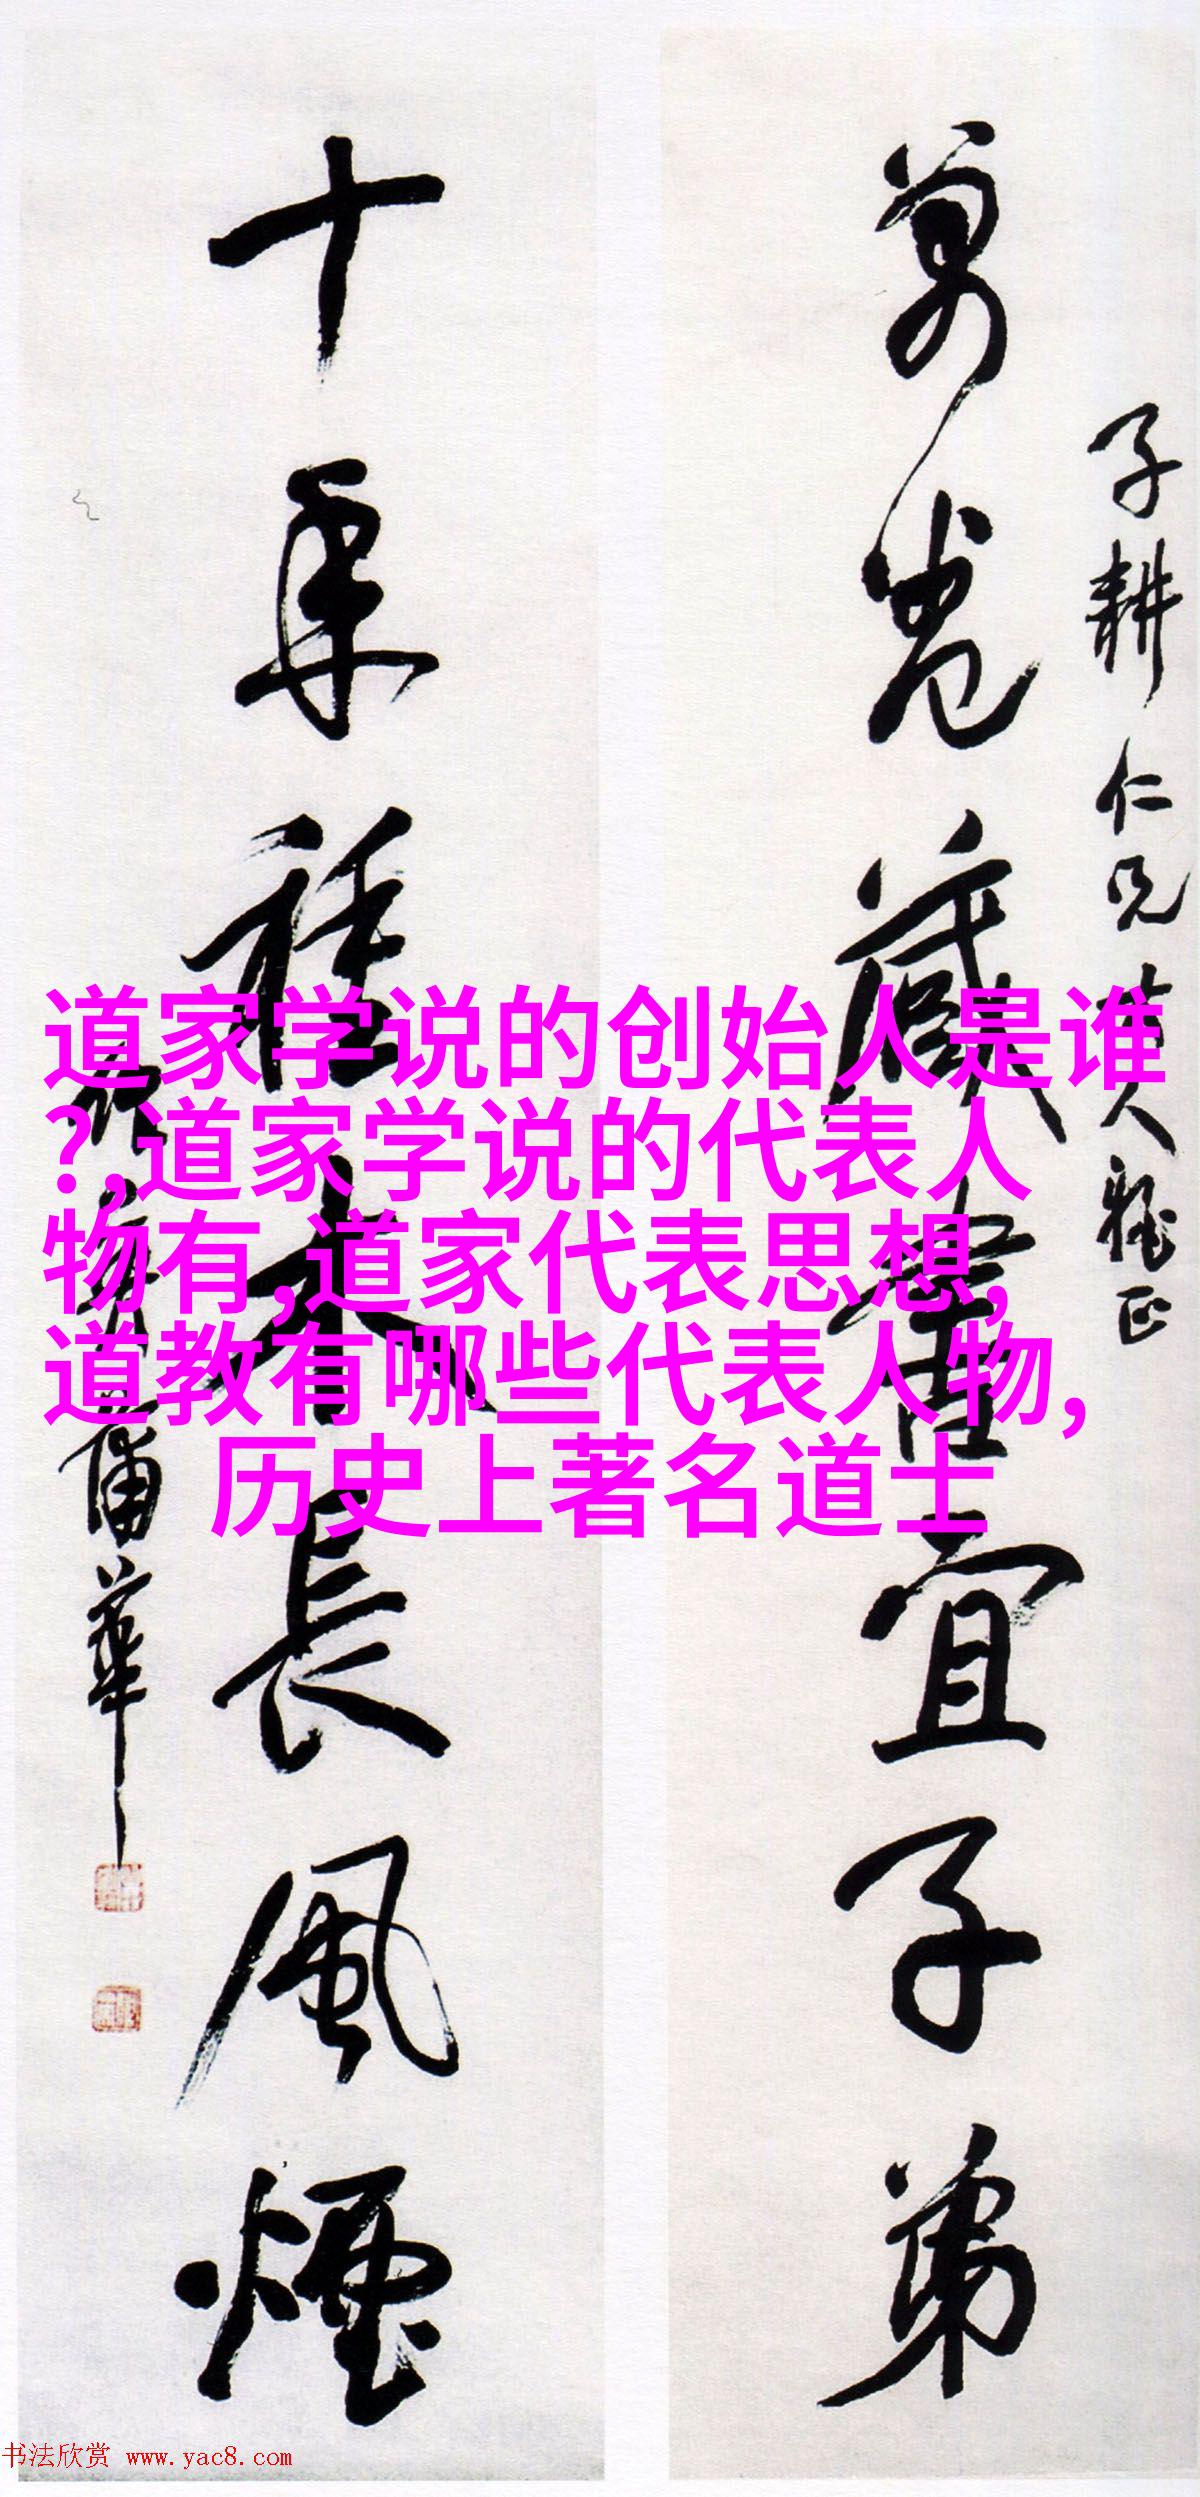 萬卷藏書宜子弟
十年種木長風煙
子耕仁兄大人雅正
蒲華
道家学说的创始人是谁
?,道家学说的代表人
物有,道家代表思想,
道教有哪些代表人物,
历史上著名道士
书法欣赏 www.yac8.com